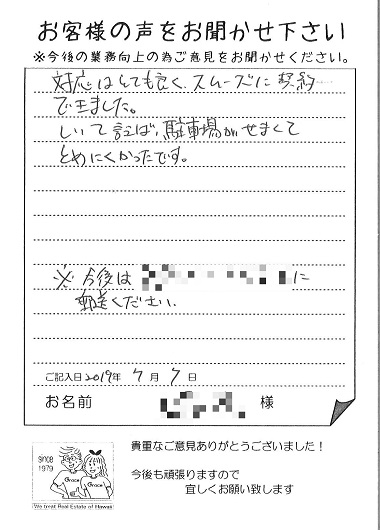 お客様の声をお聞かせ下さい
※今後の業務向上の為ご意見をお聞かせください。
対応はとても良く、スムーズに契約
できました。
しいて言えば、駐車場がせまくて
とめにくかったです。
※今後は
に
郵送ください。
ご記入日2019年 7月 7日
お名前 様
since
1979
Grace
Grace
We treat Real Estate of Hawaii
貴重なご意見ありがとうございました！
今後も頑張りますので
宜しくお願い致します